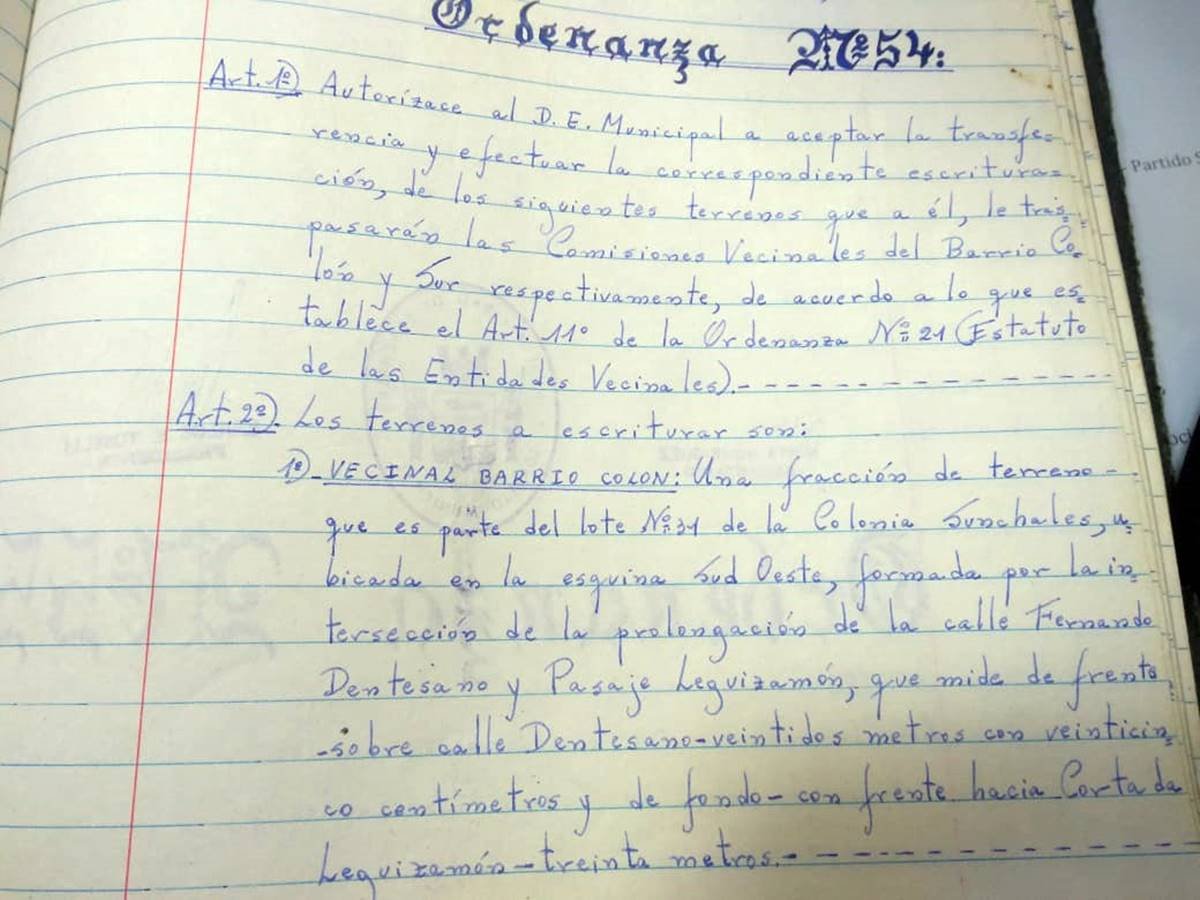 Ordenanza Nº 54:
Art. 1º) Autorízace al D. E. Municipal a aceptar la transfe=
rencia y efectuar la correspondiente escritura=
ción, de los siguientes terrenos que a él, le tras=
pasarán las Comisiones Vecinales del Barrio Co=
lón y Sur respectivamente, de acuerdo a lo que es=
tablece el Art. 11º de la Ordenanza Nº 21 (Estatuto
de las Entidades Vecinales).- - - - - - - - - - - - - - -
Art. 2º). Los terrenos a escriturar son:
1º)-VECINAL BARRIO COLON: Una fracción de terreno-
que es parte del lote Nº 31 de la Colonia Sunchales, u=
bicada en la esquina Sud Oeste, formada por la in=
tersección de la prolongación de la calle Fernando
Dentesano y Pasaje Leguizamón, que mide de frente
-sobre calle Dentesano-veintidos metros con veinticin=
co centímetros y de fondo-con frente hacia Cortada
Leguizamón-treinta metros.- - - - - - - - - - - - - -
Partido S